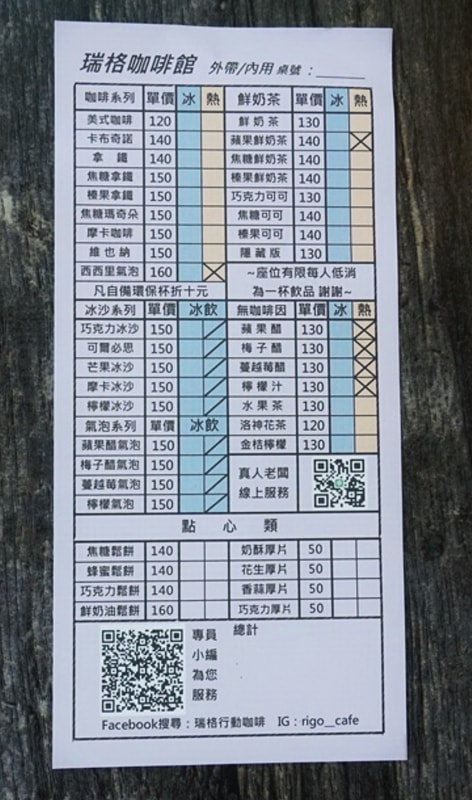 瑞格咖啡館 外帶/內用 桌號：______
咖啡系列 單價 冰 熱
美式咖啡 120
卡布奇諾 140
拿鐵 140
焦糖拿鐵 150
榛果拿鐵 150
焦糖瑪奇朵 150
摩卡咖啡 150
維也納 150
西西里氣泡 160
凡自備環保杯折十元
鮮奶茶 單價 冰 熱
鮮奶茶 130
蘋果鮮奶茶 140
焦糖鮮奶茶 140
榛果鮮奶茶 140
巧克力可可 130
焦糖可可 140
榛果可可 140
隱藏版 130
~座位有限每人低消
為一杯飲品 謝謝~
冰沙系列 單價 冰飲
巧克力冰沙 150
可爾必思 150
芒果冰沙 150
摩卡冰沙 150
檸檬冰沙 150
氣泡系列 單價 冰飲
蘋果醋氣泡 150
梅子醋氣泡 150
蔓越莓氣泡 150
檸檬氣泡 150
無咖啡因 單價 冰 熱
蘋果醋 130
梅子醋 130
蔓越莓醋 130
檸檬汁 130
水果茶 130
洛神花茶 120
金桔檸檬 130
真人老闆
線上服務
點心類
焦糖鬆餅 140
蜂蜜鬆餅 140
巧克力鬆餅 140
鮮奶油鬆餅 160
奶酥厚片 50
花生厚片 50
香蒜厚片 50
巧克力厚片 50
專員
小編
為您
服務
總計
Facebook搜尋：瑞格行動咖啡 IG：rigo__cafe